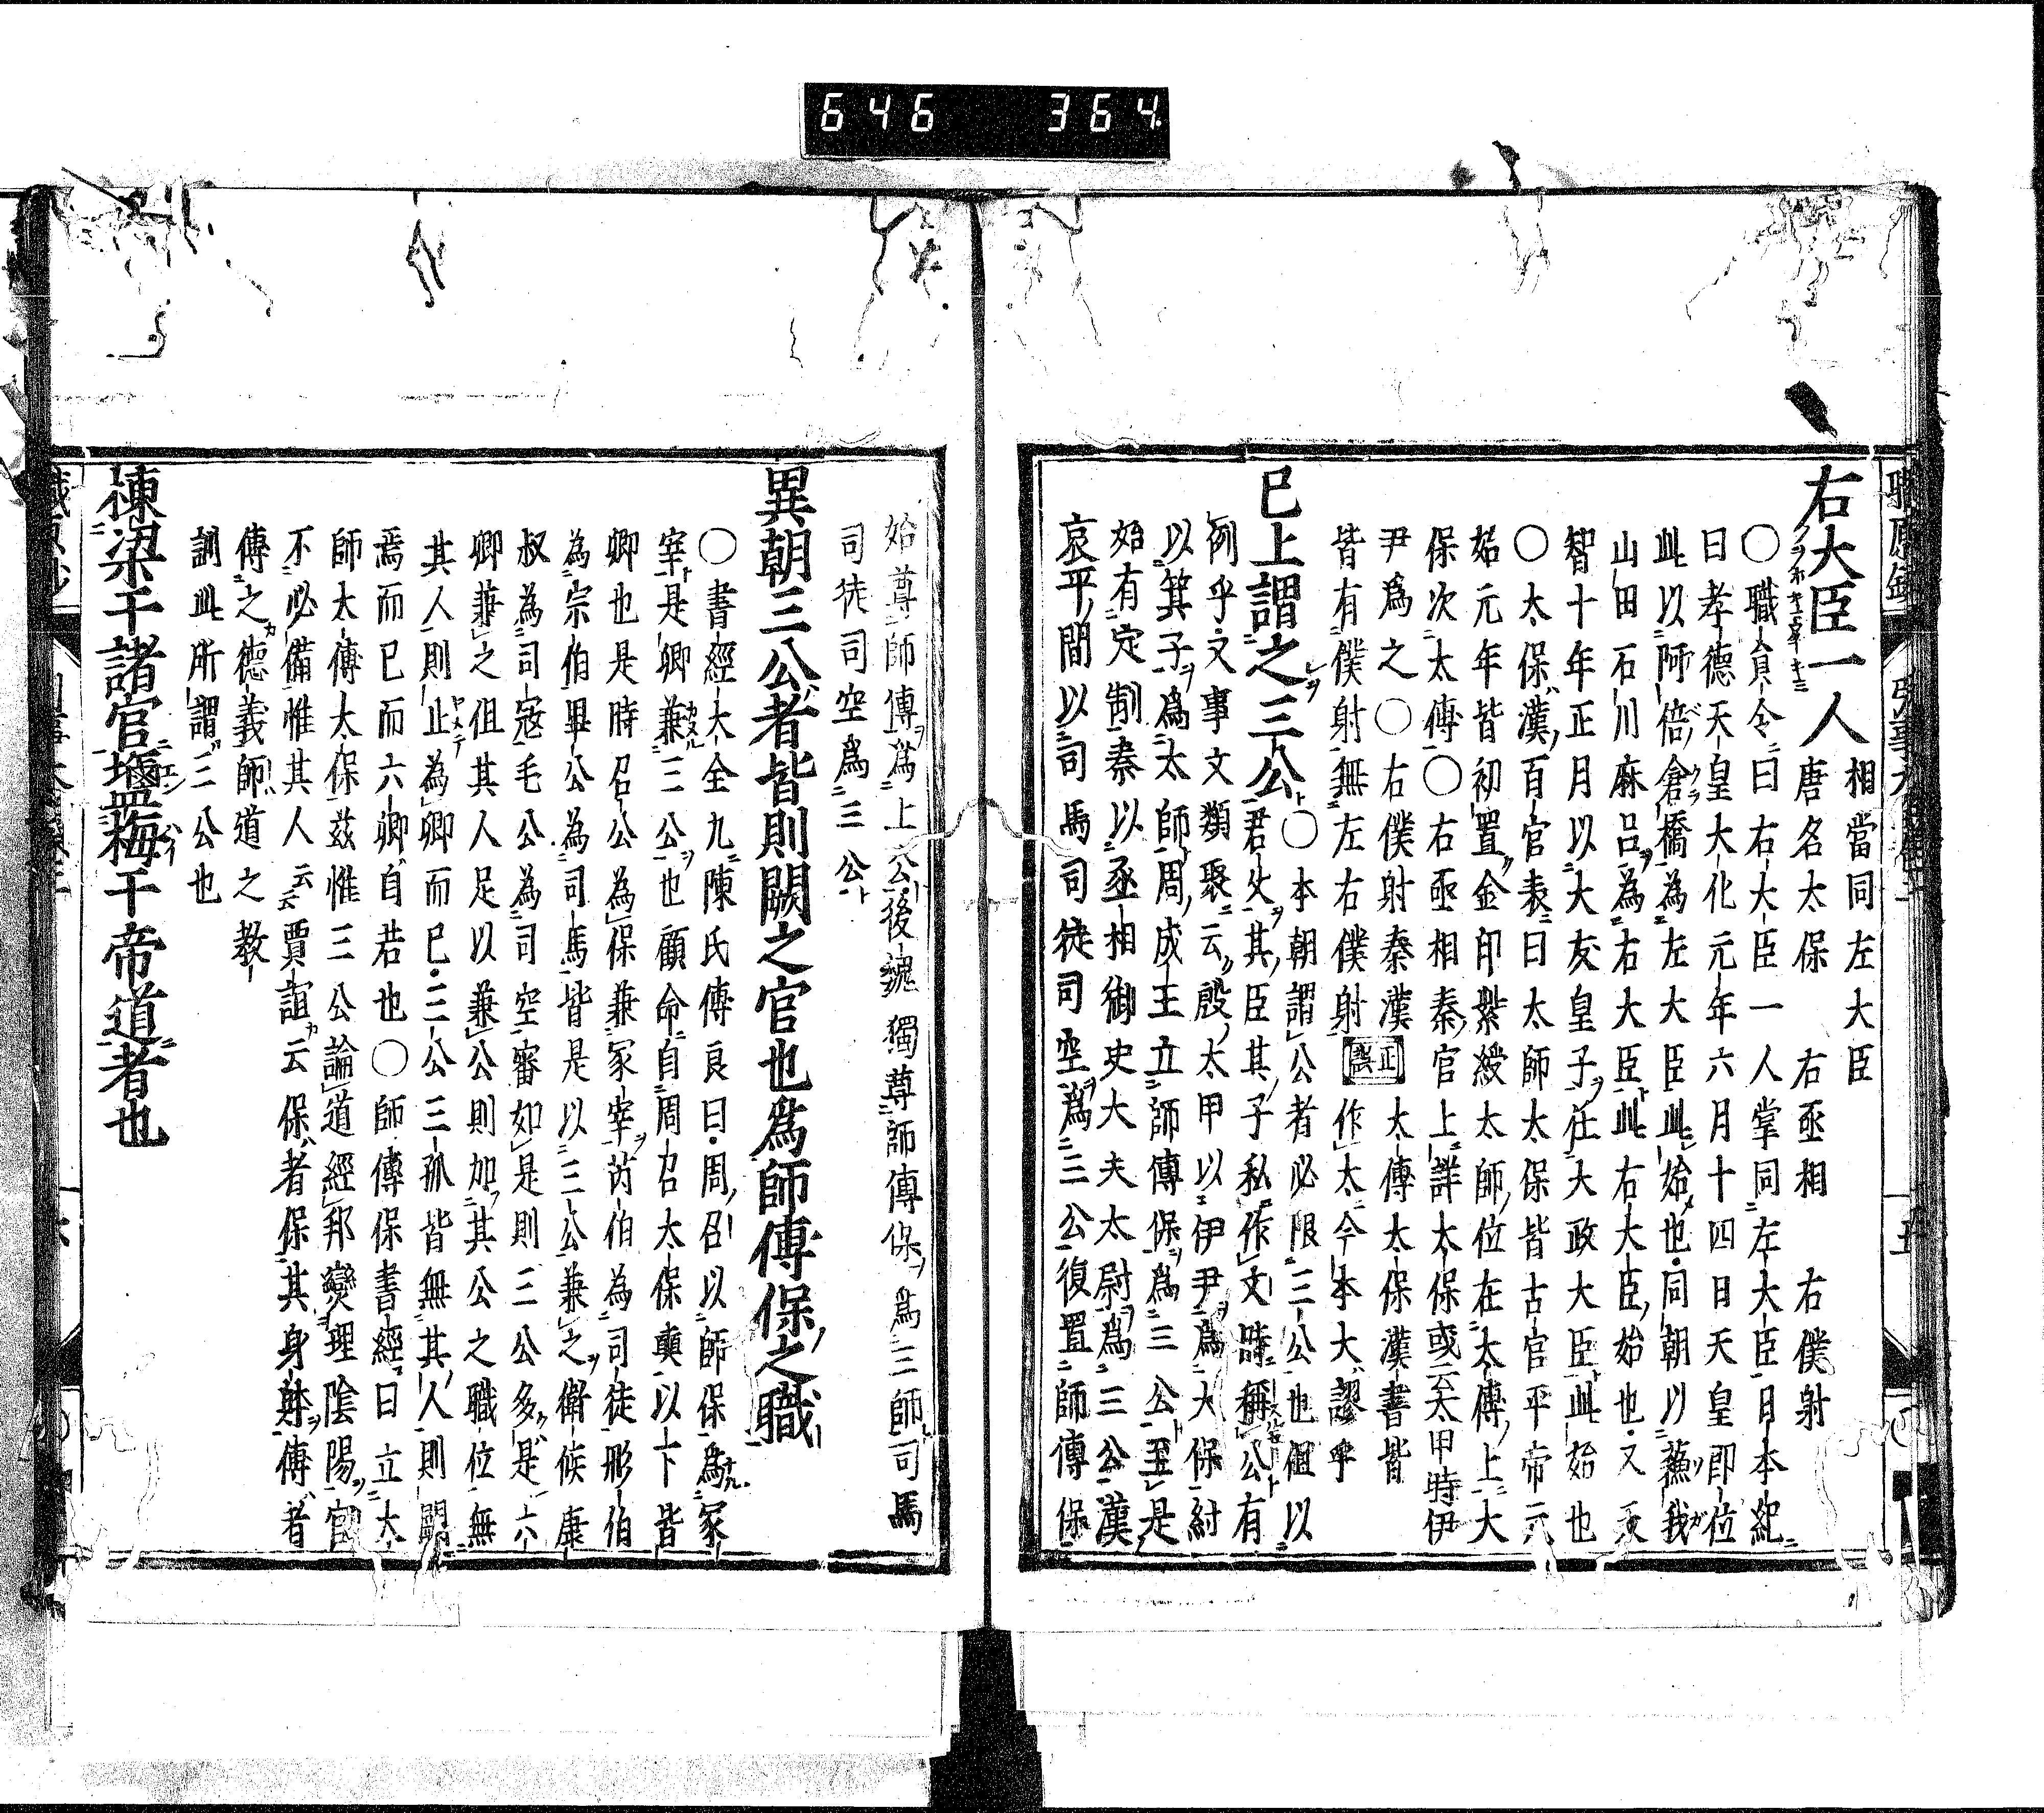 646 364
右大臣一人
相當同左大臣
唐名太保 右丞相 右僕射
〇職員令曰右大臣一人掌同左大臣日本紀
曰孝德天皇大化元年六月十四日天皇即位
此以阿倍倉橋為左大臣此始也同朝以蘓我
山田石川麻呂為右大臣此右大臣始也又天
智十年正月以大友皇子任大政大臣此始也
〇太保漢百官表曰太師太保皆古官平帝元
始元年皆初置金印紫綬太師位在太傅上大
保次太傅〇右丞相秦官上詳太保或云太甲時伊
尹爲之〇右僕射秦漢太傅太保漢書皆
皆有僕射無左右僕射正誤作太今本大謬乎
已上謂之三公
〇本朝謂公者必限三公也但以
君父其臣其子私作文時稱公有
例乎文事文類聚云殷太甲以伊尹爲大保紂
以箕子爲太師周成王立師傅保爲三公至是
始有定制秦以丞相御史大夫太尉爲三公漢
哀平間以司馬司徒司空爲三公復置師傅保
始尊師傅爲上公後魏獨尊師傅保爲三師司馬
司徒司空爲三公
異朝三公者皆則闕之官也爲師傅保之職
〇書經大全九陳氏傅良曰周召以師保爲冢
宰是卿兼三公也顧命自周召太保奭以下皆
卿也是時召公為保兼冢宰芮伯為司徒彤伯
為宗伯畢公為司馬皆是以三公兼之衛候康
叔為司寇毛公為司空審如是則三公多是六
卿兼之但其人足以兼公則加其公之職位無
其人則止為卿而已三公三孤皆無其人則闕
焉而已而六卿自若也〇師傅保書經曰立太
師太傅太保茲惟三公論道經邦爕理陰陽官
不必備惟其人云云賈誼云保者保其身躰傅者
傅之德義師道之教
訓此所謂三公也
棟梁于諸官塩梅于帝道者也